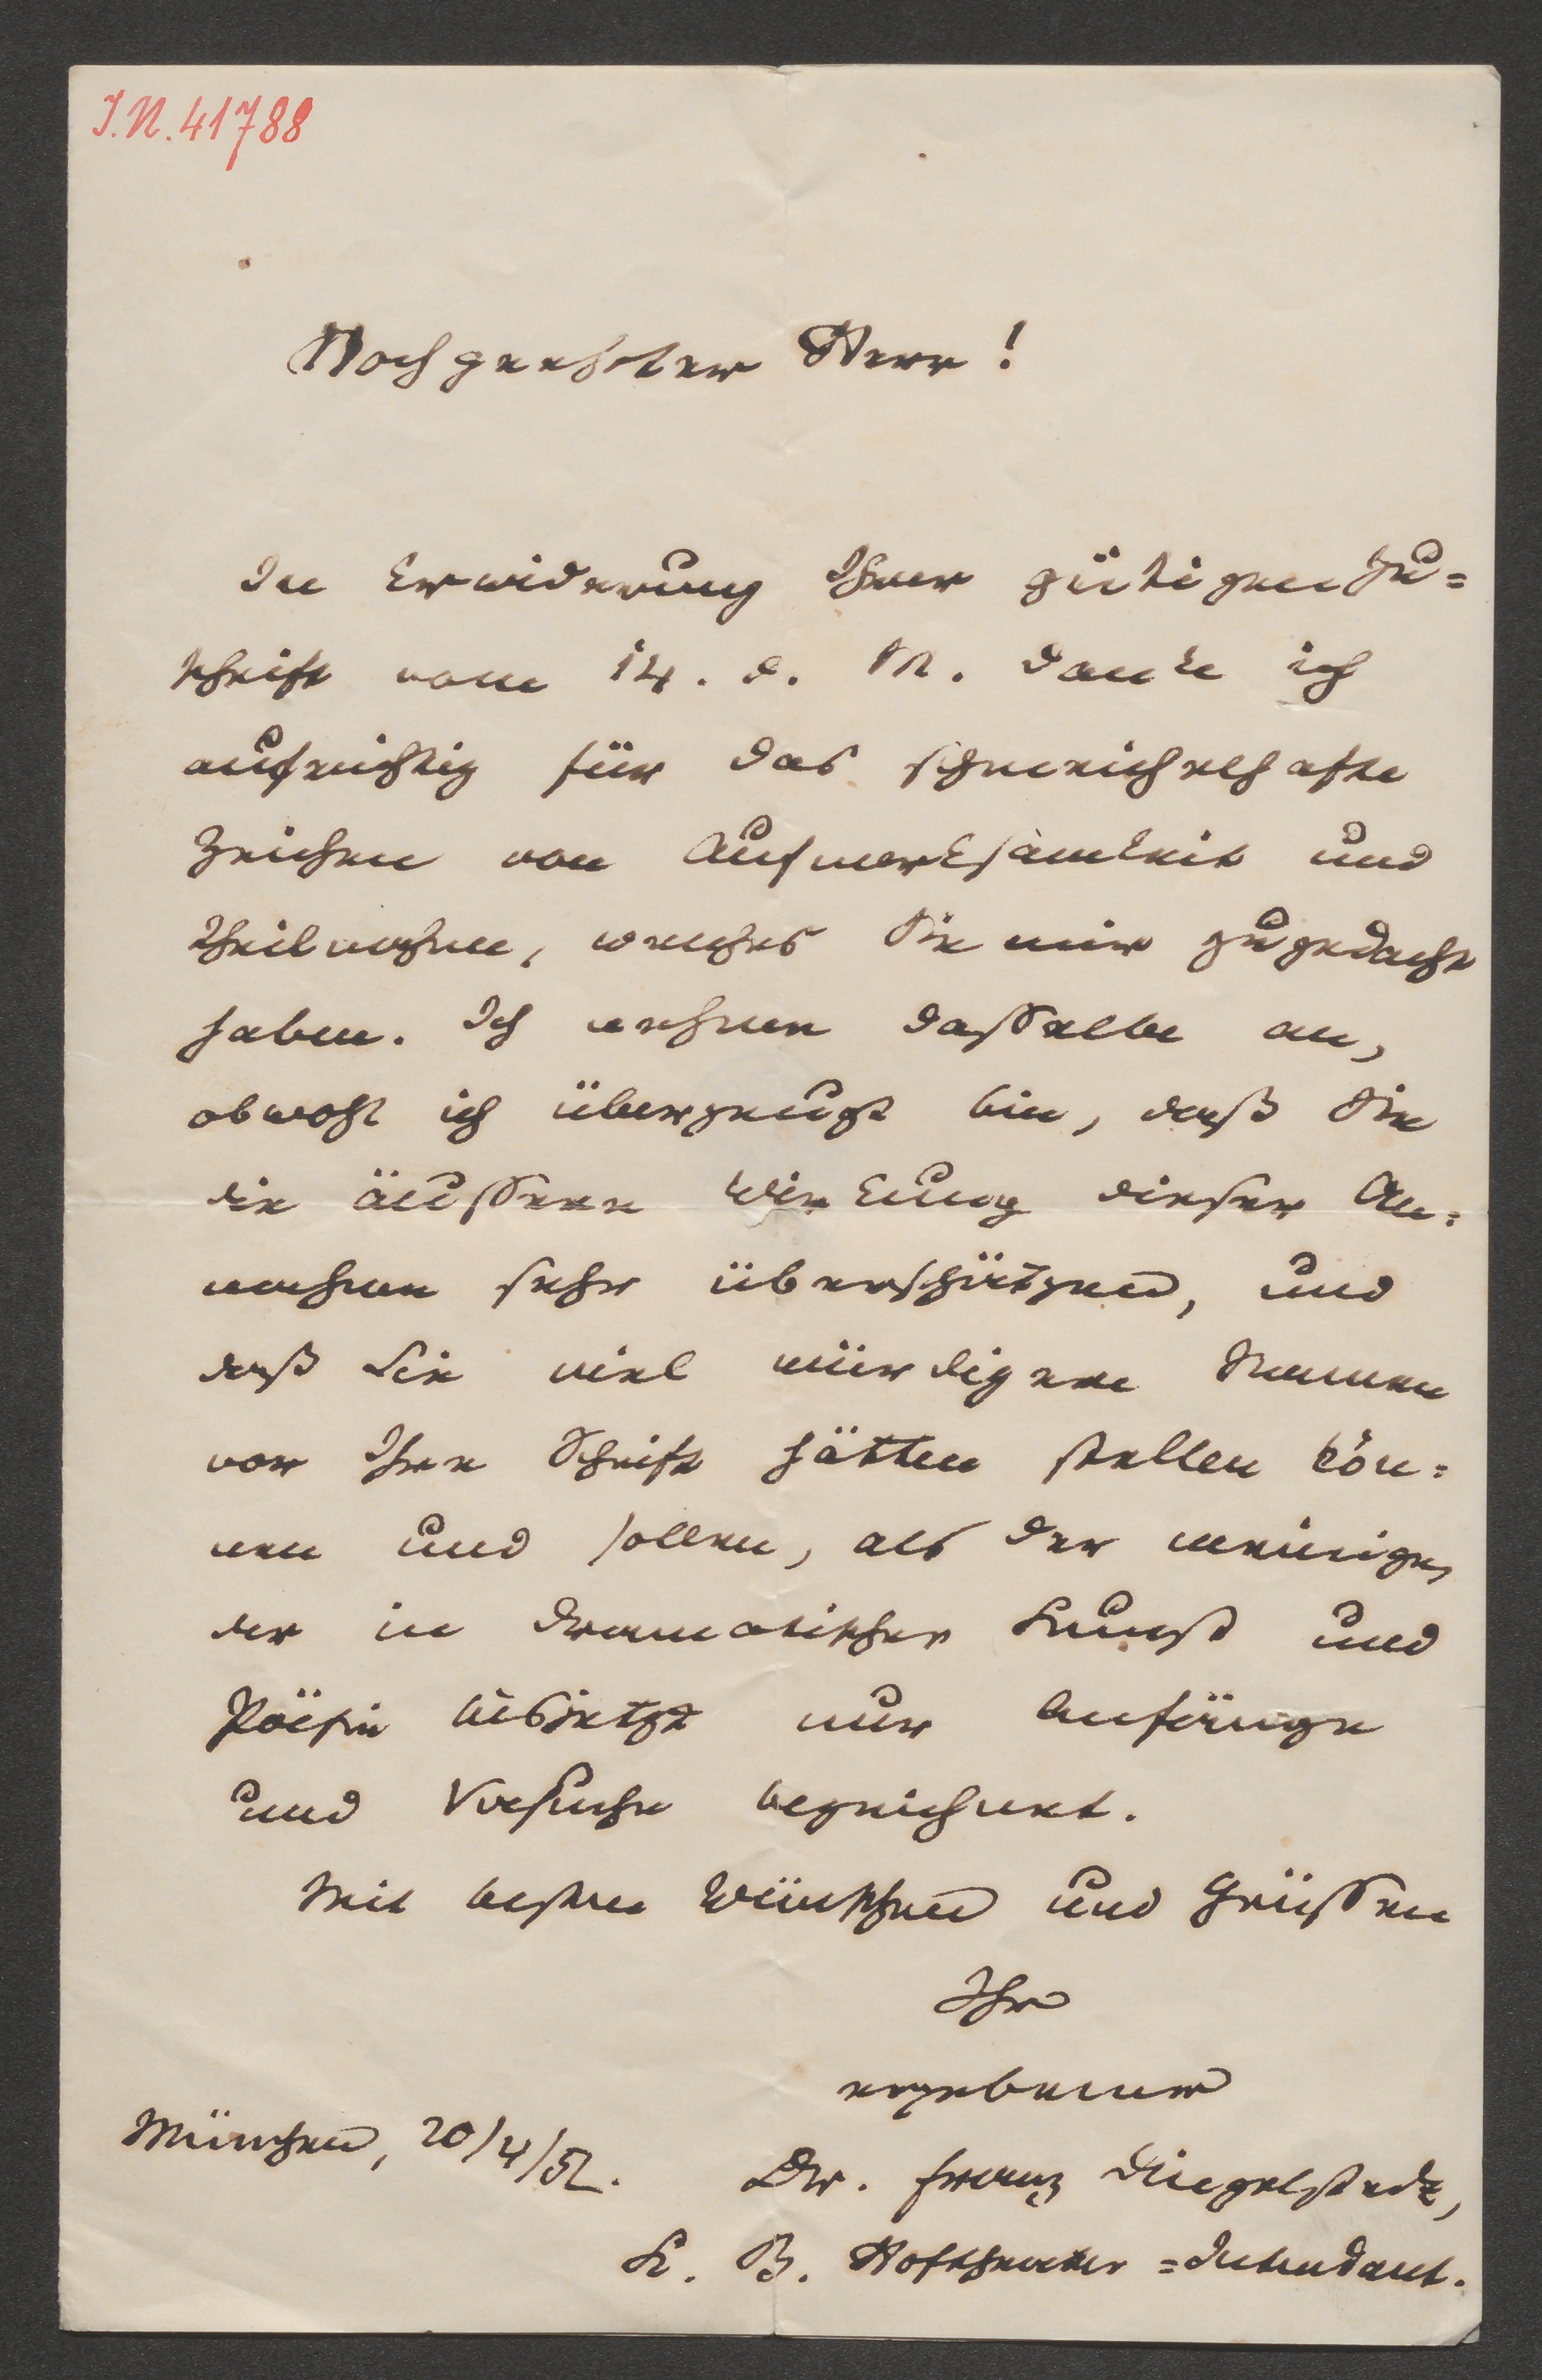 J.N. 41788
Hochgeehrter Herr!
In Erwiderung Ihrer gütigen Zu=
schrift vom 14. d. M. danke ich
aufrichtig für das schmeichelhafte
Zeichen von Aufmerksamkeit und
Theilnahme, welches Sie mir zugedacht
haben. Ich nehme dasselbe an,
obwohl ich überzeugt bin, daß Sie
die äussere Wirkung dieser An=
nahme sehr überschätzen, und
daß Sie viel würdigere Namen
vor Ihre Schrift hätten stellen kön=
nen und sollen, als der meinige,
der in dramatischer Kunst und
Poësie bisjetzt nur Anfänge
und Versuche bezeichnet.
Mit besten Wünschen und Grüssen
Ihr
ergebener
München, 20/4/52.
Dr. Franz Dingelstedt,
K. B. Hoftheater=Intendant.